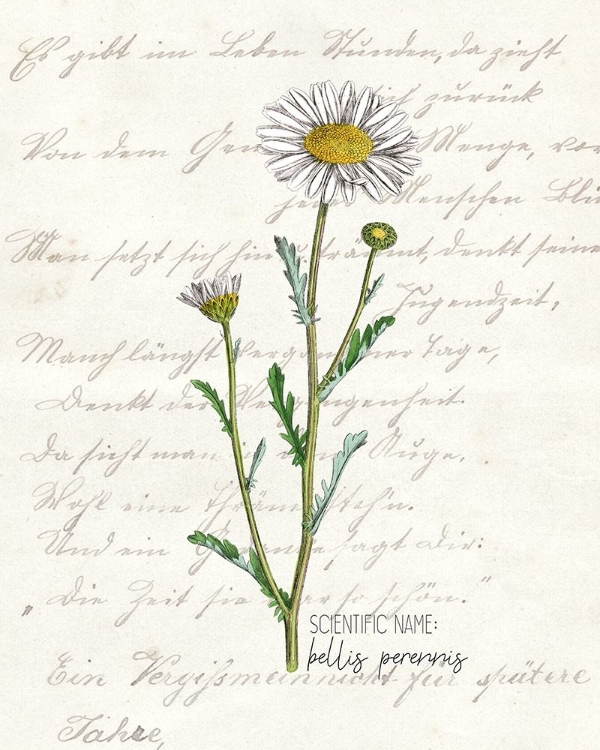 Es gibt im Leben Stunden, da zieht
sich zurück
Von dem Menge, von
jene Menschen
Man setzt sich hin u. träumt, denkt seine
Jugendzeit,
Manch längst vergangener Tage,
Denkt der Vergangenheit.
Da sieht man in dem Auge,
Wohl eine Thräne steh'n.
Und ein Gedanke sagt Dir:
„Die Zeit sie war so schön."
SCIENTIFIC NAME:
bellis perennis
Ein Vergißmeinnicht für spätere
Jahre,